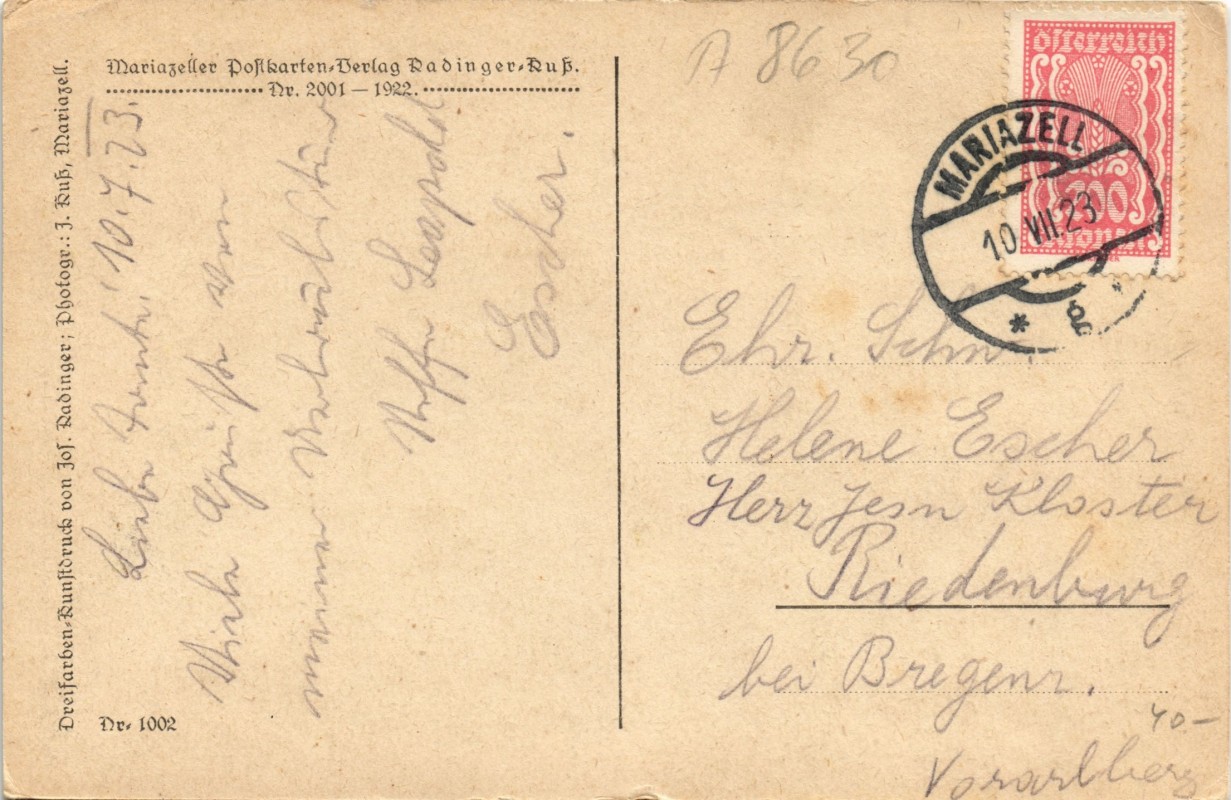 Mariazeller Postkarten-Verlag Radinger-Ruß.
Nr. 2001 — 1922.
Dreifarben-Kunstdruck von Jos. Radinger; Photogr.: J. Ruß, Mariazell.
Nr. 1002
Liebe Tante! 10.7.23.
Viele Grüße von
meiner
Neffe Leopold
Escher.
A 8630
Österreich
200
Kronen
MARIAZELL
10 VII 23
* g *
Ehr. Schw.
Helene Escher
Herz Jesu Kloster
Riedenburg
bei Bregenz.
40-
Vorarlberg